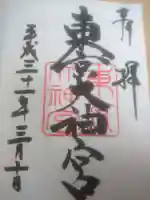 奉拝
東京大神宮
平成三十一年三月十日